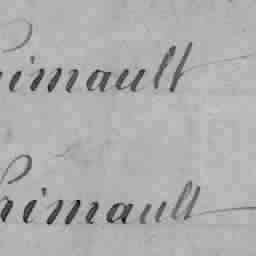 rimault
rimault